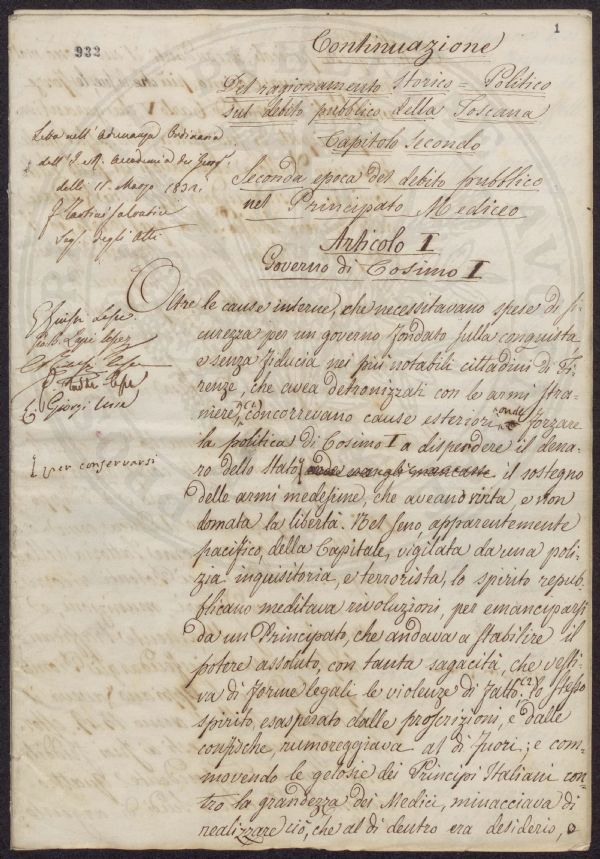 932
1
Continuazione
Del ragionamento Storico = Politico
sul debito pubblico della Toscana
Capitolo secondo
Seconda epoca del debito pubblico
nel Principato Mediceo
Articolo I
Governo di Cosimo I
Letta nell' Adunanza Ordinaria
dell' I. e R. Accademia dei Georg.
delli 11. Marzo 1832.
Tartini Salvatici
Seg. degli Atti
Oltre le cause interne, che necessitavano spese di si-
curezza per un governo fondato sulla conquista
e senza fiducia nei più notabili cittadini di Fi-
renze, che avea detronizzati con le armi stra-
niere, (1) concorrevano cause esteriori onde forzare
la politica di Cosimo I a dispendere il dena-
ro dello stato, il sostegno
delle armi medesime, che aveano vinta, e non
domata la libertà. Nel seno apparentemente
pacifico, della Capitale, vigilata da una poli-
zia inquisitoria, e terrorista, lo spirito repub-
blicano meditava rivoluzioni, per emanciparsi
da un Principato, che andava a stabilire il
potere assoluto, con tanta sagacità, che vesti-
va di forme legali le violenze di fatto. (2) lo stesso
spirito, esasperato dalle proscrizioni, e dalle
confische, rumoreggiava al di fuori; e com-
movendo le gelosie dei Principi Italiani con-
tro la grandezza dei Medici, minacciava di
realizzare ciò, che al di dentro era desiderio, o
per conservarsi